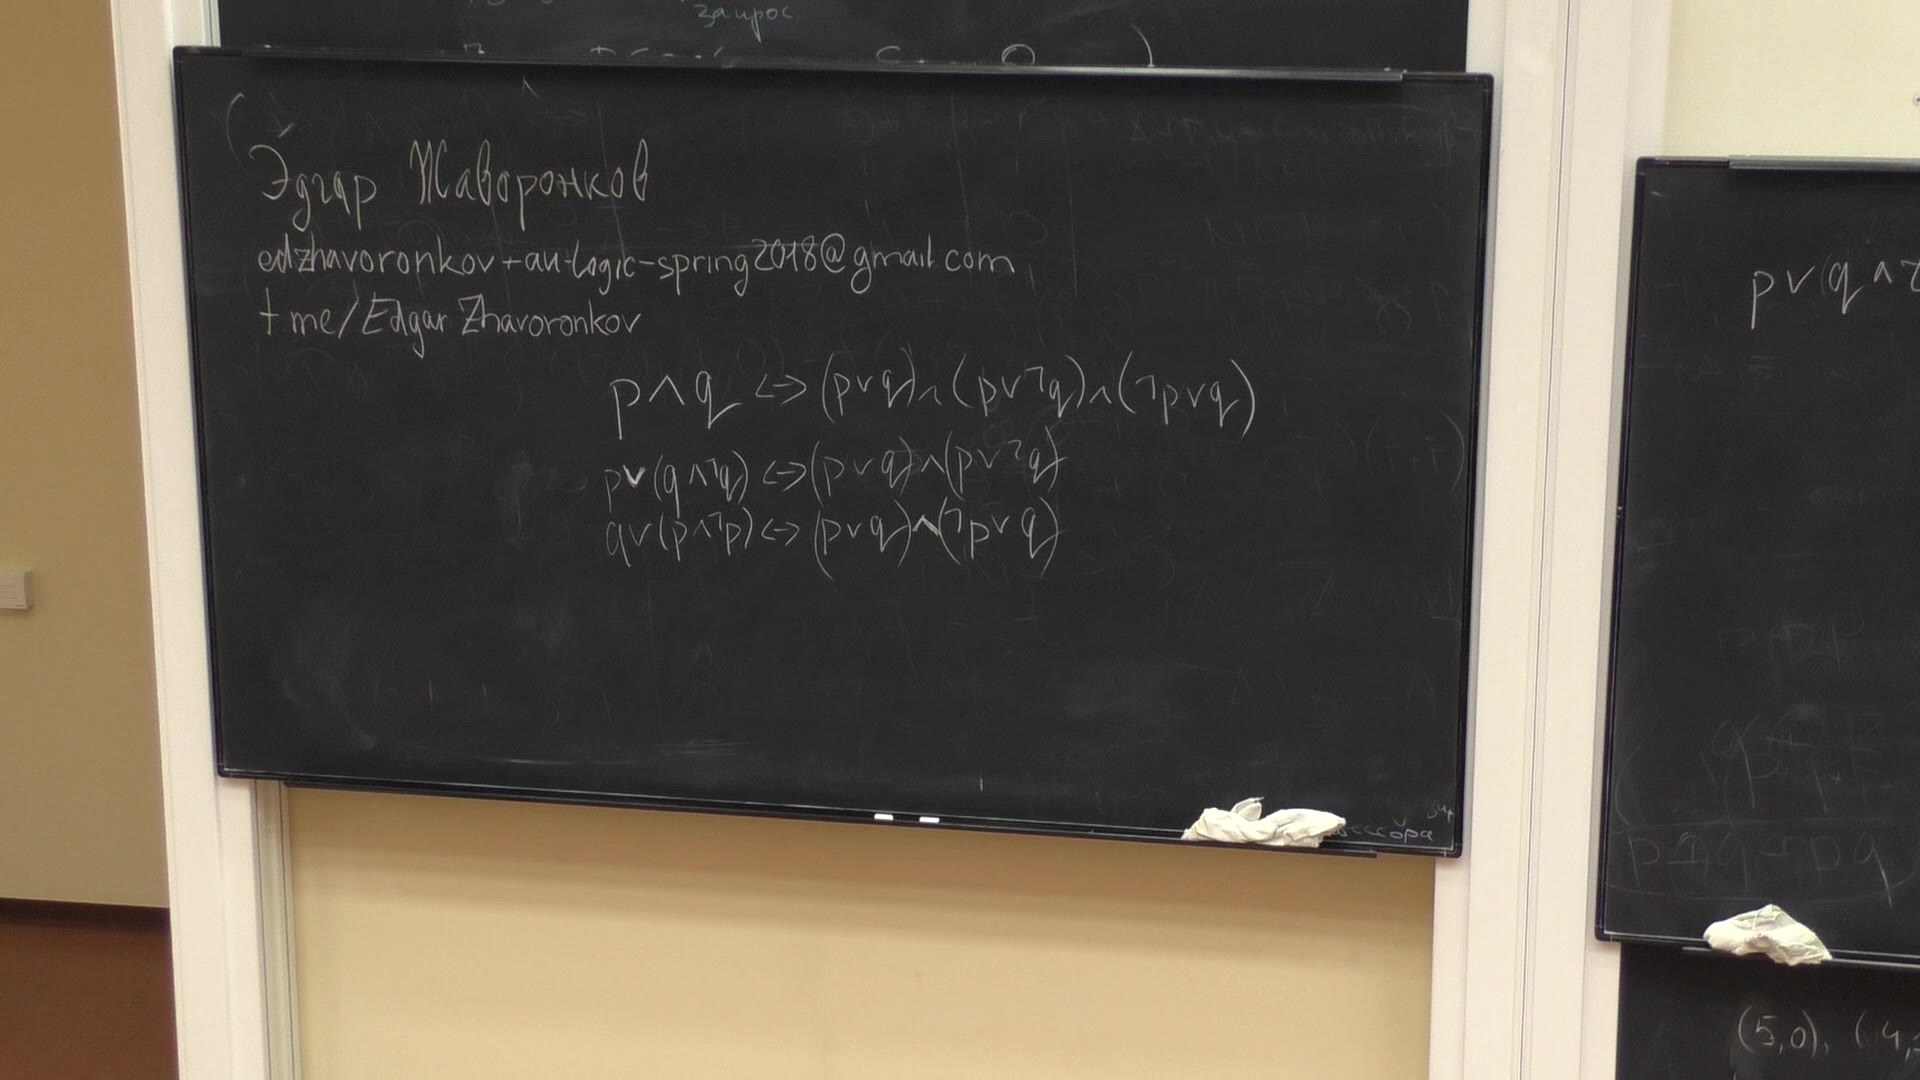 запрос.
Эдгар Жаворонков
edzhavoronkov+au-logic-spring2018@gmail.com
t.me/EdgarZhavoronkov
p∧q ↔ (p∨q)∧(p∨¬q)∧(¬p∨q)
p∨(q∧¬q) ↔ (p∨q)∧(p∨¬q)
q∨(p∧¬p) ↔ (p∨q)∧(¬p∨q)
p∨(q∧
(5,0), (4,